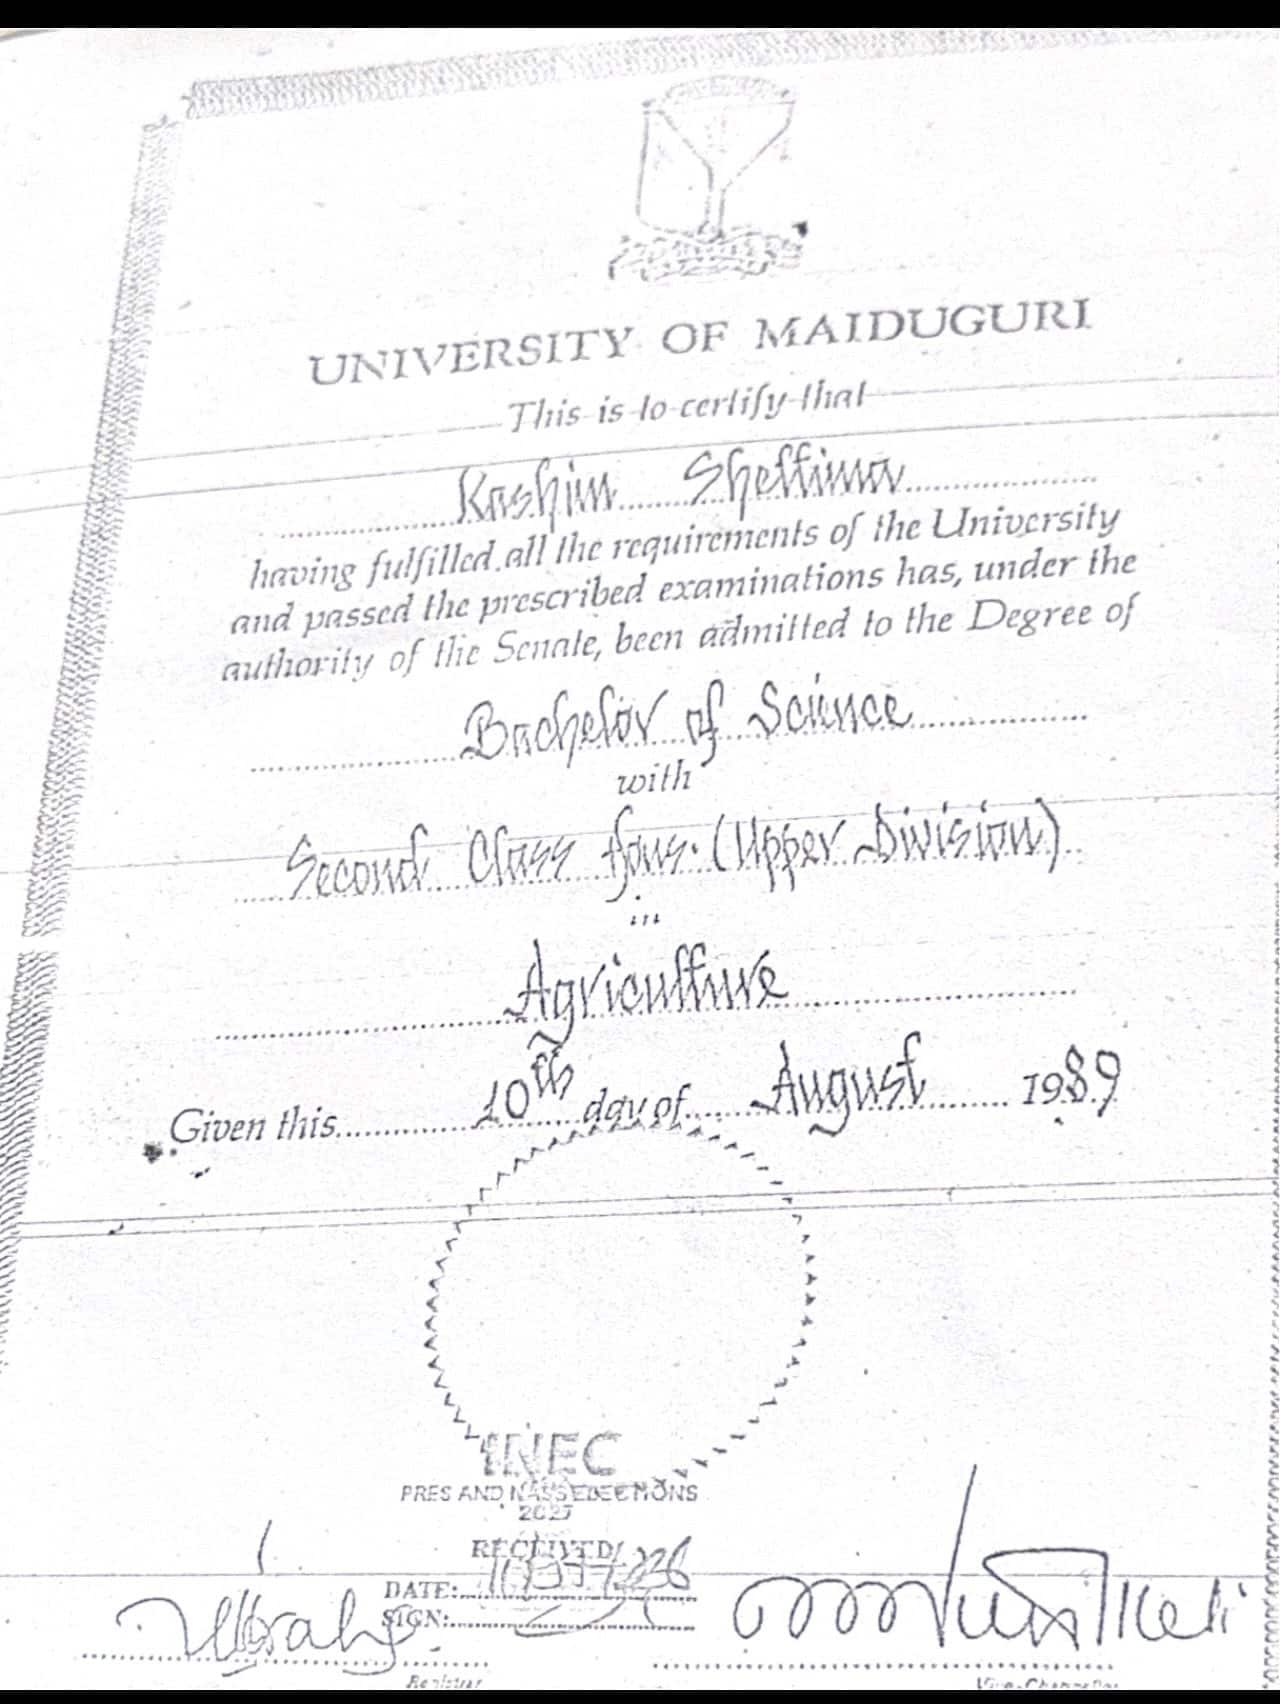 UNIVERSITY OF MAIDUGURI
This is to certify that
Kashim Shettima
having fulfilled all the requirements of the University
and passed the prescribed examinations has, under the
authority of the Senate, been admitted to the Degree of
Bachelor of Science
with
Second Class Hons. (Upper Division)
in
Agriculture
Given this 10th day of August 1989
INEC
PRES AND NASS ELECTIONS
2027
RECEIVED
DATE:
SIGN:
Registrar
Vice-Chancellor